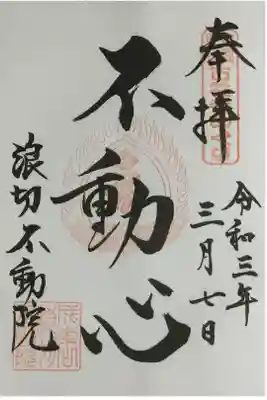 奉拝
令和三年
三月七日
不動心
浪切不動院